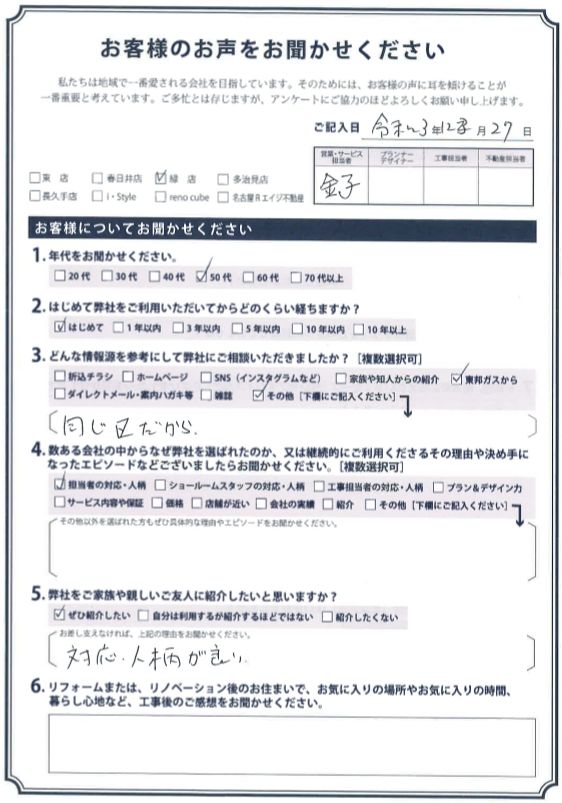 お客様のお声をお聞かせください
私たちは地域で一番愛される会社を目指しています。そのためには、お客様の声に耳を傾けることが
一番重要と考えています。ご多忙とは存じますが、アンケートにご協力のほどよろしくお願い申し上げます。
ご記入日 令和3年12月27日
営業・サービス担当者 プランナーデザイナー 工事担当者 不動産担当者
金子
□東 店 □春日井店 ☑緑 店 □多治見店
□長久手店 □i・Style □reno cube □名古屋Rエイジ不動産
お客様についてお聞かせください
1. 年代をお聞かせください。
□20代 □30代 □40代 ☑50代 □60代 □70代以上
2. はじめて弊社をご利用いただいてからどのくらい経ちますか？
☑はじめて □1年以内 □3年以内 □5年以内 □10年以内 □10年以上
3. どんな情報源を参考にして弊社にご相談いただきましたか？［複数選択可］
□折込チラシ □ホームページ □SNS（インスタグラムなど） □家族や知人からの紹介 ☑東邦ガスから
□ダイレクトメール・案内ハガキ等 □雑誌 ☑その他［下欄にご記入ください］
同じ区だから
4. 数ある会社の中からなぜ弊社を選ばれたのか、又は継続的にご利用くださるその理由や決め手に
なったエピソードなどございましたらお聞かせください。［複数選択可］
☑担当者の対応・人柄 □ショールームスタッフの対応・人柄 □工事担当者の対応・人柄 □プラン＆デザイン力
□サービス内容や保証 □価格 □店舗が近い □会社の実績 □紹介 □その他［下欄にご記入ください］
その他以外を選ばれた方もぜひ具体的な理由やエピソードをお聞かせください。
5. 弊社をご家族や親しいご友人に紹介したいと思いますか？
☑ぜひ紹介したい □自分は利用するが紹介するほどではない □紹介したくない
お差し支えなければ、上記の理由をお聞かせください。
対応・人柄が良い
6. リフォームまたは、リノベーション後のお住まいで、お気に入りの場所やお気に入りの時間、
暮らし心地など、工事後のご感想をお聞かせください。